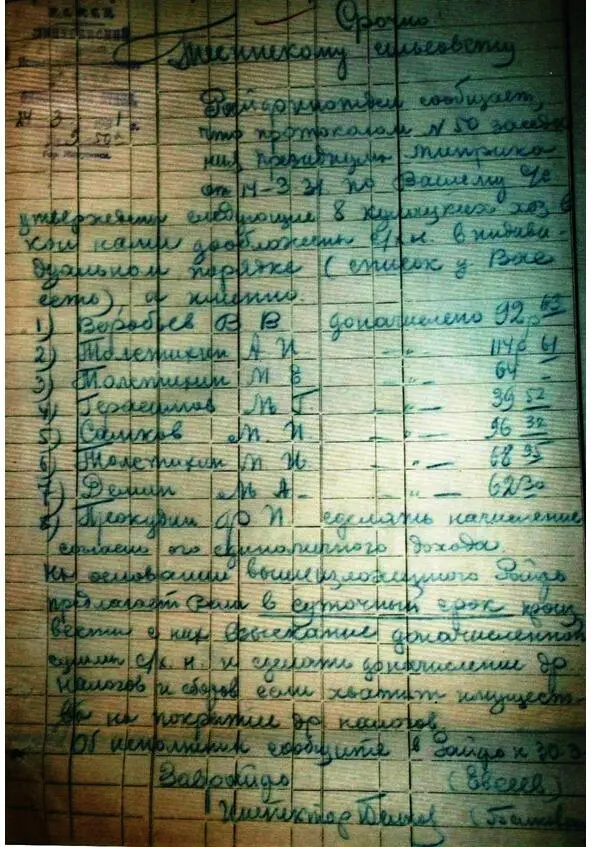 Срочно
сельсовету
сообщает,
что протоколом N 50 заседа
ния президиума
от 14-3 31 по Вашему с/с
следующие 8 кулацких хоз в
с/х.н. в индиви-
дуальном порядке (список у Вас
есть), а именно.
1) Воробьев В В доначислено 92р 63
2) Толстихин А И -"- 114р 61
3) Толстихин М Е -"- 64 -
4) Герасимов М Г. -"- 39 52
5) М. И -"- 96 32
6) Толстихин М И -"- 68 95
7) Демин М А- -"- 62 30
8) Прокудин И сделать начисление
согласно его единоличного дохода.
На основании вышеизложенного Райфо
предлагает Вам в суточный срок произ
вести с них взыскание доначисленной
суммы с/х. н. и сделать доначисление др
налогов и сборов если хватит имущест-
ва на покрытие др налогов.
Об исполнении сообщите в Райфо к 30-3
Заврайфо (Евсеев)
Инспектор